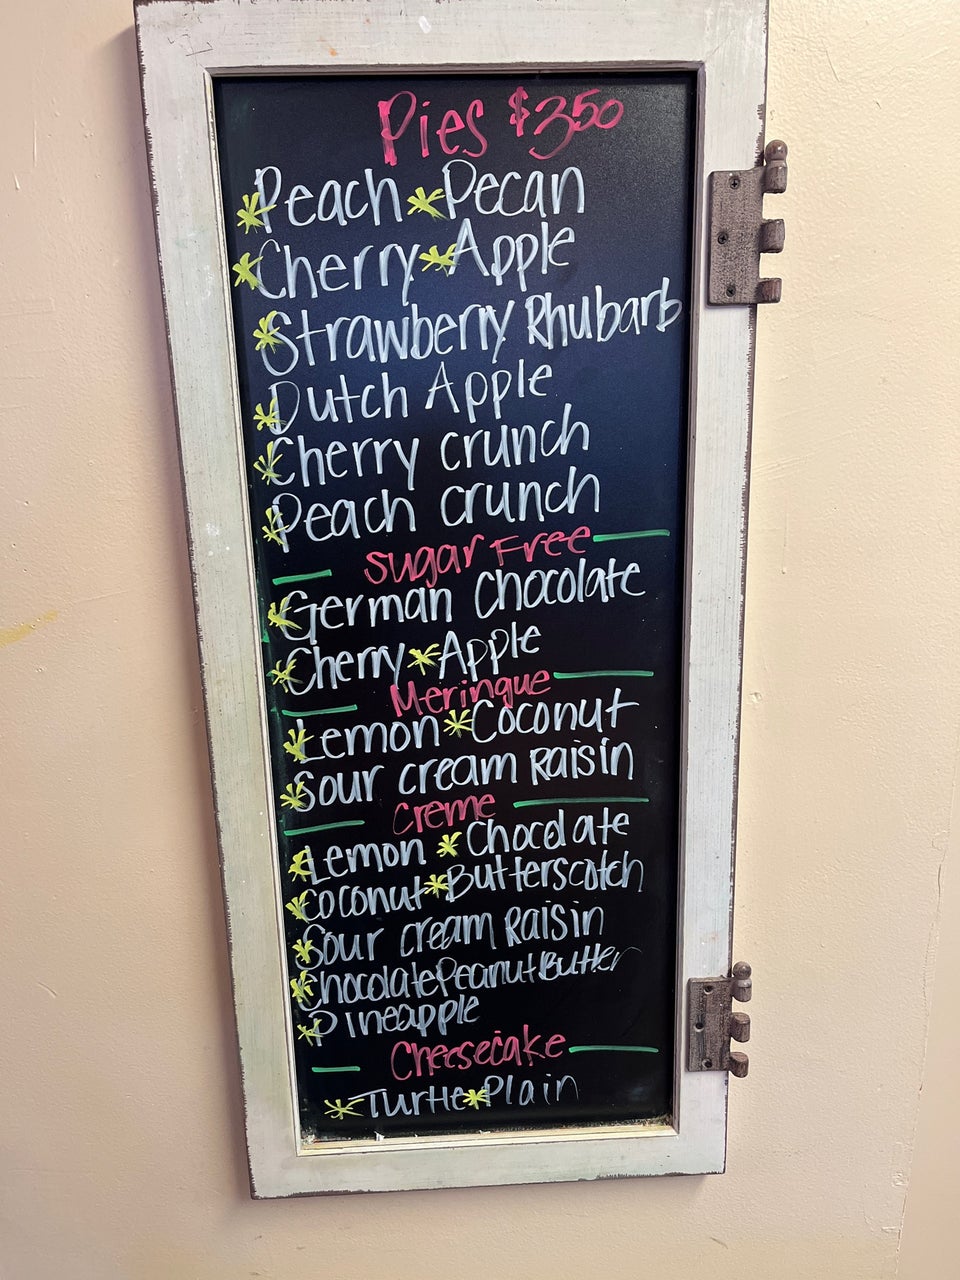 Pies $3.50
*Peach *Pecan
*Cherry *Apple
*Strawberry Rhubarb
*Dutch Apple
*Cherry crunch
*Peach crunch
Sugar Free
*German Chocolate
*Cherry *Apple
Meringue
*Lemon *Coconut
*Sour cream Raisin
Creme
*Lemon *Chocolate
*Coconut *Butterscotch
*Sour cream Raisin
*Chocolate Peanut Butter
*Pineapple
Cheesecake
*Turtle *Plain